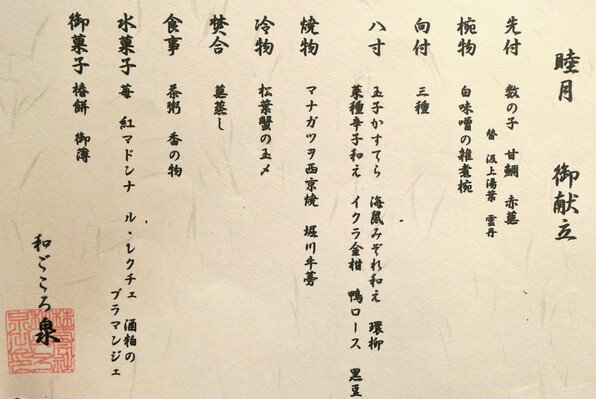 睦月 御献立
先付 数の子 甘鯛 赤蕪
替 汲上湯葉 雲丹
椀物 白味噌の雑煮椀
向付 三種
八寸 玉子かすてら 海鼠みぞれ和え 環柳
菜種辛子和え イクラ金柑 鴨ロース 黒豆
焼物 マナガツヲ西京焼 堀川牛蒡
冷物 松葉蟹の玉〆
焚合 蕪蒸し
食事 茶粥 香の物
水菓子 苺 紅マドンナ ル・レクチェ 酒粕の
ブラマンジェ
御菓子 椿餅 御薄
和ごころ 泉